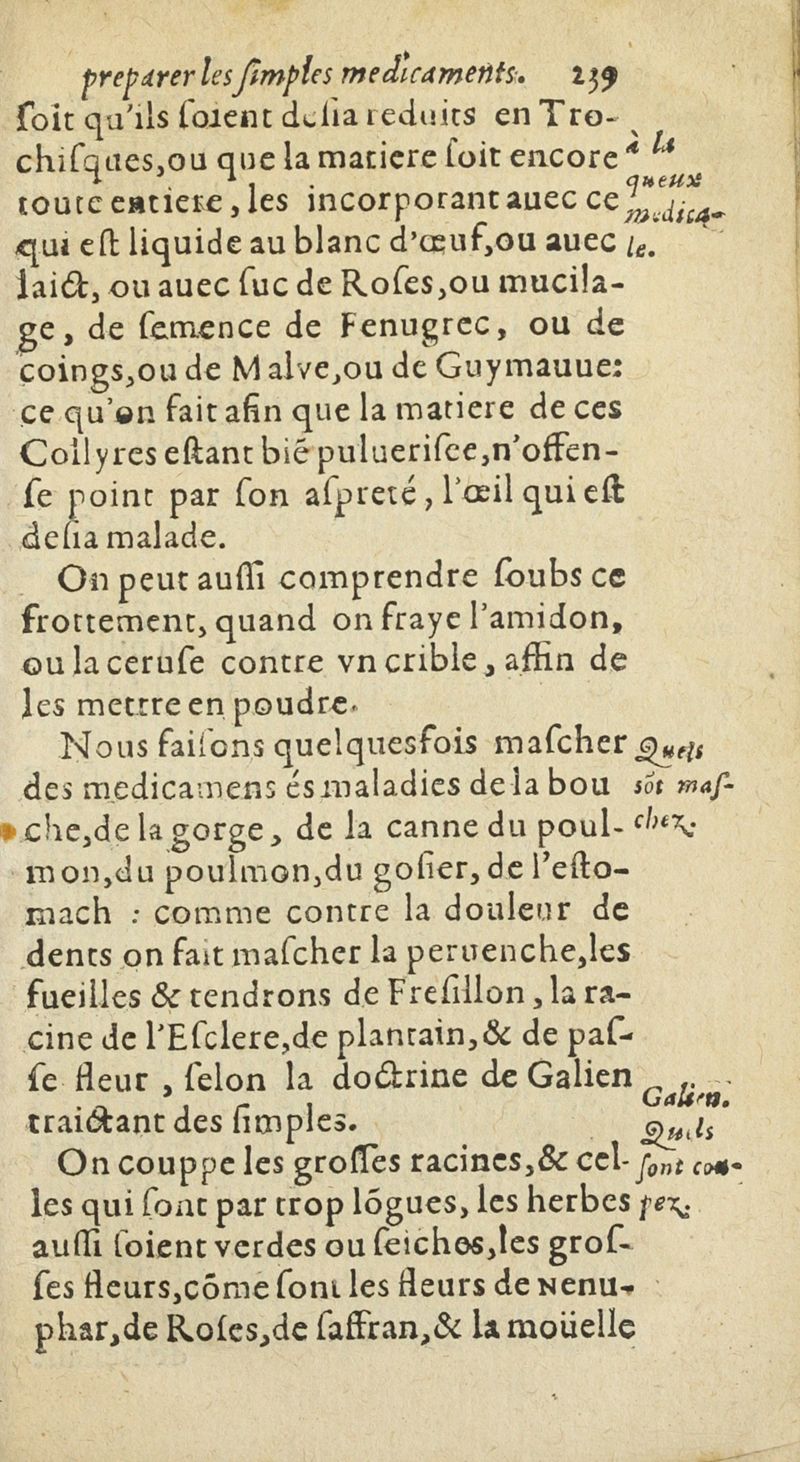 preparer les ſimples medicaments. 239
ſoit qu'ils ſoient deſia reduits en Tro-
chiſques,ou que la matiere ſoit encore
toute entiere, les incorporant auec ce
qui eſt liquide au blanc d'œuf,ou auec
laict, ou auec ſuc de Roſes,ou mucila-
ge, de ſemence de Fenugrec, ou de
coings,ou de Malve,ou de Guymauue:
ce qu'on fait afin que la matiere de ces
Collyres eſtant bié pulueriſee,n'offen-
ſe point par ſon aſpreté, l'œil qui eſt
deſia malade.
On peut auſſi comprendre ſoubs ce
frottement, quand on fraye l'amidon,
ou la ceruſe contre vn crible, affin de
les mettre en poudre.
Nous faiſons quelquesfois maſcher
des medicamens és maladies de la bou
che,de la gorge, de la canne du poul-
mon,du poulmon,du goſier, de l'eſto-
mach : comme contre la douleur de
dents on fait maſcher la peruenche,les
fueilles & tendrons de Freſillon, la ra-
cine de l'Eſclere,de plantain,& de paſ-
ſe fleur , ſelon la doctrine de Galien
traictant des ſimples.
On couppe les groſſes racines,& cel-
les qui ſont par trop lógues, les herbes
auſſi ſoient verdes ou ſeiches,les groſ-
ſes fleurs,cóme ſont les fleurs de Nenu-
phar,de Roſes,de ſaffran,& la moüelle
queux
medica-
Quels
sōt maſ-
chez.
Galien.
Quils
ſont cou-
pez.